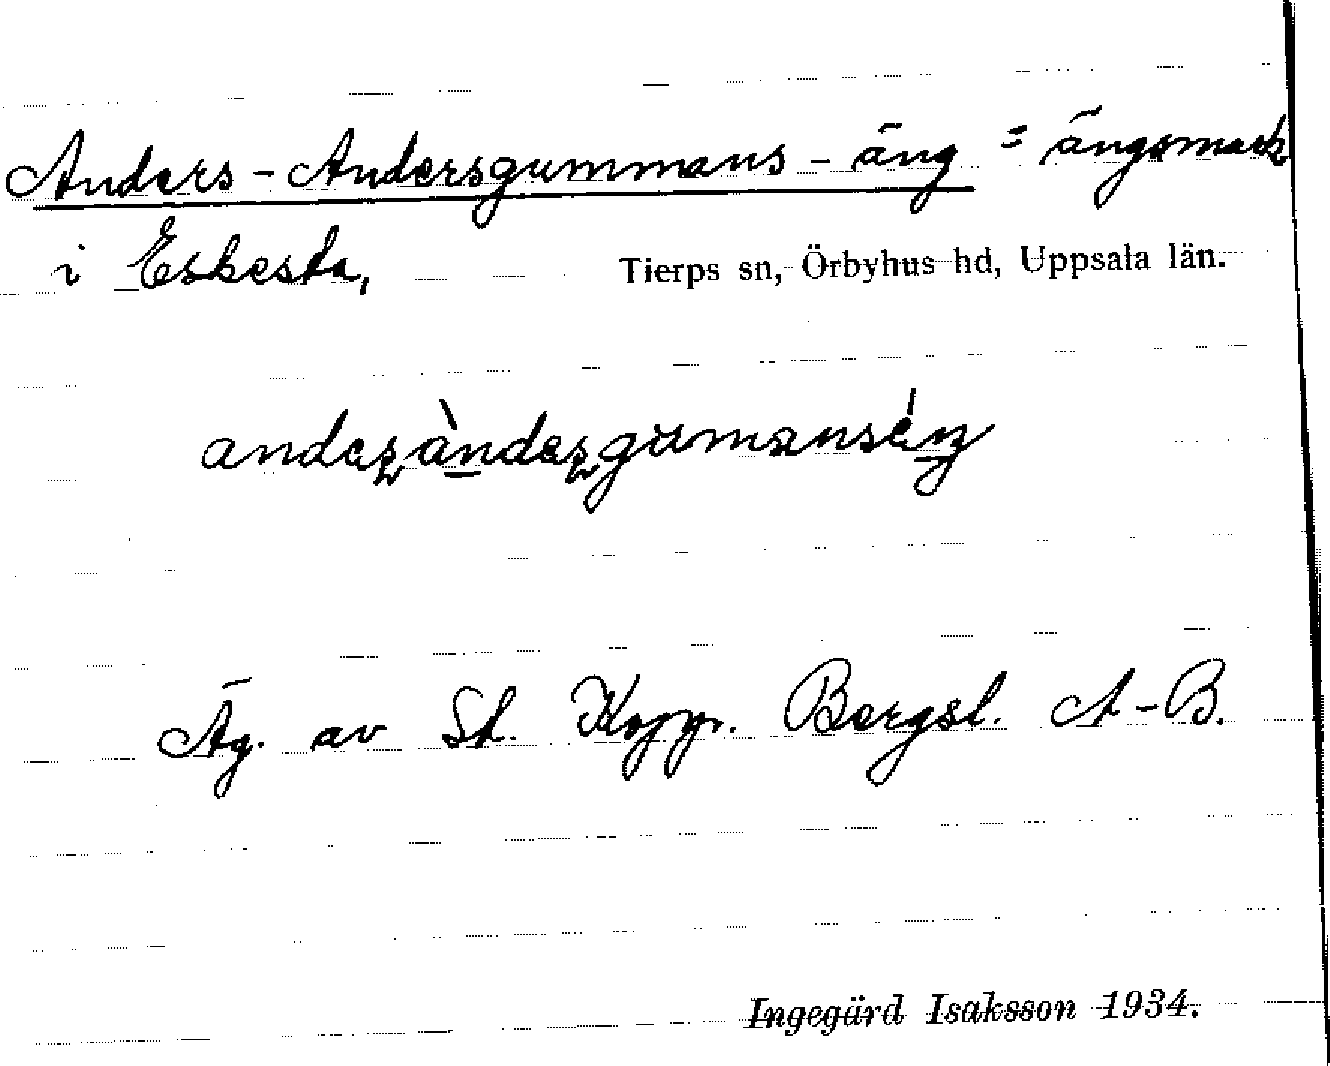 Anders-Andersgummans-äng = ängsmark
i Eskesta, Tierps sn, Örbyhus hd, Uppsala län.
Äg. av St. Kopp. Bergsl. A-B.
Ingegärd Isaksson 1934.